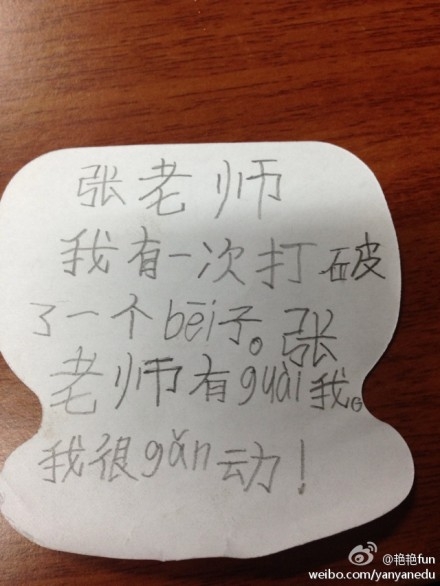 张老师
我有一次打破
了一个bēi子。张
老师有guài我。
我很gǎn动！
@艳艳fun
weibo.com/yanyanedu